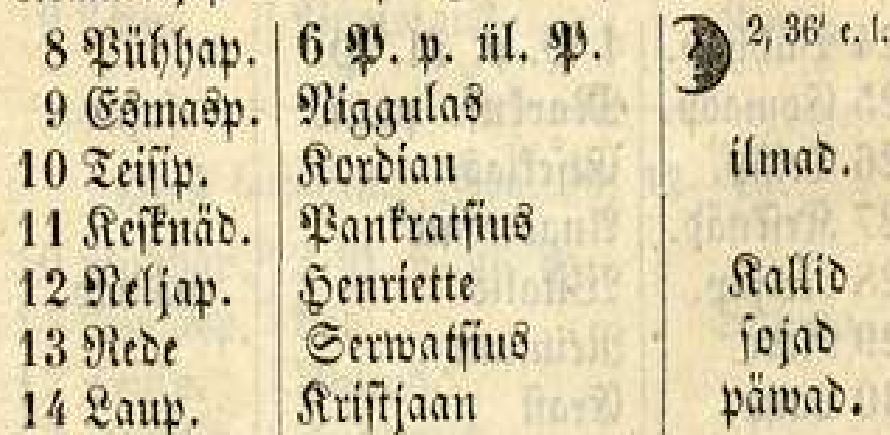 8 Pühhap. 6 P. p. ül. P. 2, 36' e. l.
9 Esmasp. Niggulas
10 Teisip. Kordian ilmad.
11 Kesknäd. Pankratsius
12 Neljap. Henriette Kallid
13 Rede Serwatsius sojad
14 Laup. Kristjaan päwad.